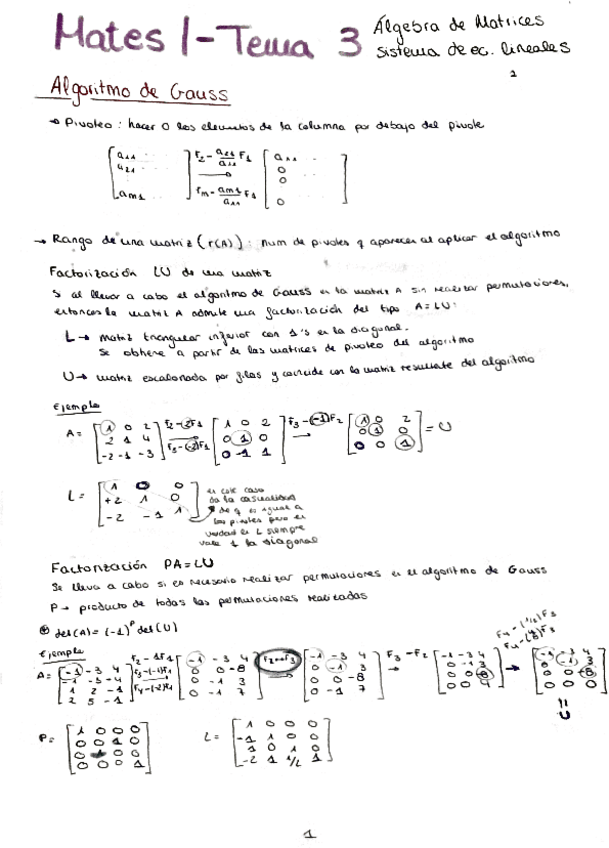 Mates 1 - Tema 3 Álgebra de Matrices
sistema de ec. lineales
1
Algoritmo de Gauss
→ Pivoteo: hacer 0 los elementos de la columna por debajo del pivote
a11 ... F2 - a21/a11 F1 a11 ...
a21 ... → 0
0
am1 Fm - am1/a11 F1 0
→ Rango de una matriz (r(A)): num de pivotes q aparecen al aplicar el algoritmo
Factorización LU de una matriz
S al llevar a cabo el algoritmo de Gauss en la matriz A sin realizar permutaciones,
entonces la matriz A admite una factorización del tipo A=LU:
L → matriz triangular inferior con 1's en la diagonal.
Se obtiene a partir de las matrices de pivoteo del algoritmo
U → matriz escalonada por filas y coincide con la matriz resultante del algoritmo
Ejemplo
A = [1 0 2] F2-(2)F1 [1 0 2] F3-(-1)F2 [1 0 2] = U
[2 1 4] → [0 1 0] → [0 1 0]
[-2 -1 -3] F3-(-2)F1 [0 -1 1] [0 0 1]
L = [1 0 0] en este caso
[+2 1 0] da la casualidad
[-2 -1 1] de q es igual a
los pivotes pero en
verdad en L siempre
vale 1 la diagonal
Factorización PA=LU
Se lleva a cabo si es necesario realizar permutaciones en el algoritmo de Gauss
P → producto de todas las permutaciones realizadas
det(A) = (-1)^P det(U)
Ejemplo
F4-(1/2)F3
A = [-1 -3 4] F2-1F1 [-1 -3 4] F2↔F3 [-1 -3 4] F3 -F2 [-1 -3 4] → [-1 -3 4]
[-1 -3 -4] F3-(-1)F1 [0 0 -8] → [0 -1 3] → [0 -1 3] [0 -1 3]
[1 2 -1] F4-(-2)F1 [0 -1 3] [0 0 -8] [0 0 -8] [0 0 -8]
[2 5 -1] [0 -1 7] [0 -1 7] [0 0 4] [0 0 0]
= U
P = [1 0 0 0] L = [1 0 0 0]
[0 0 1 0] [-1 1 0 0]
[0 1 0 0] [1 0 1 0]
[0 0 0 1] [-2 1 1/2 1]
1